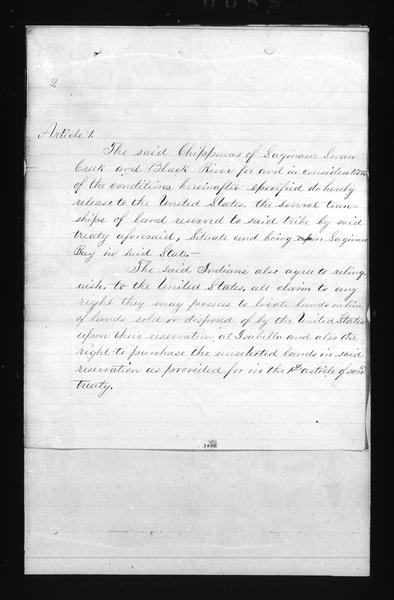 2
Article 1.
The said Chippewas of Saginaw, Swan
Creek and Black River for and in consideration
of the conditions hereinafter specified do hereby
release to the United States the several town
ships of land reserved to said tribe by said
treaty aforesaid, Situate and being upon Saginaw
Bay in said State.—
The said Indians also agree to relinq
uish to the United States, all claim to any
right they may possess to locate lands in lieu
of lands sold or disposed of by the United States
upon their reservation at Isabella and also the
right to purchase the unselected lands in said
reservation as provided for in the 1st article of said
treaty.